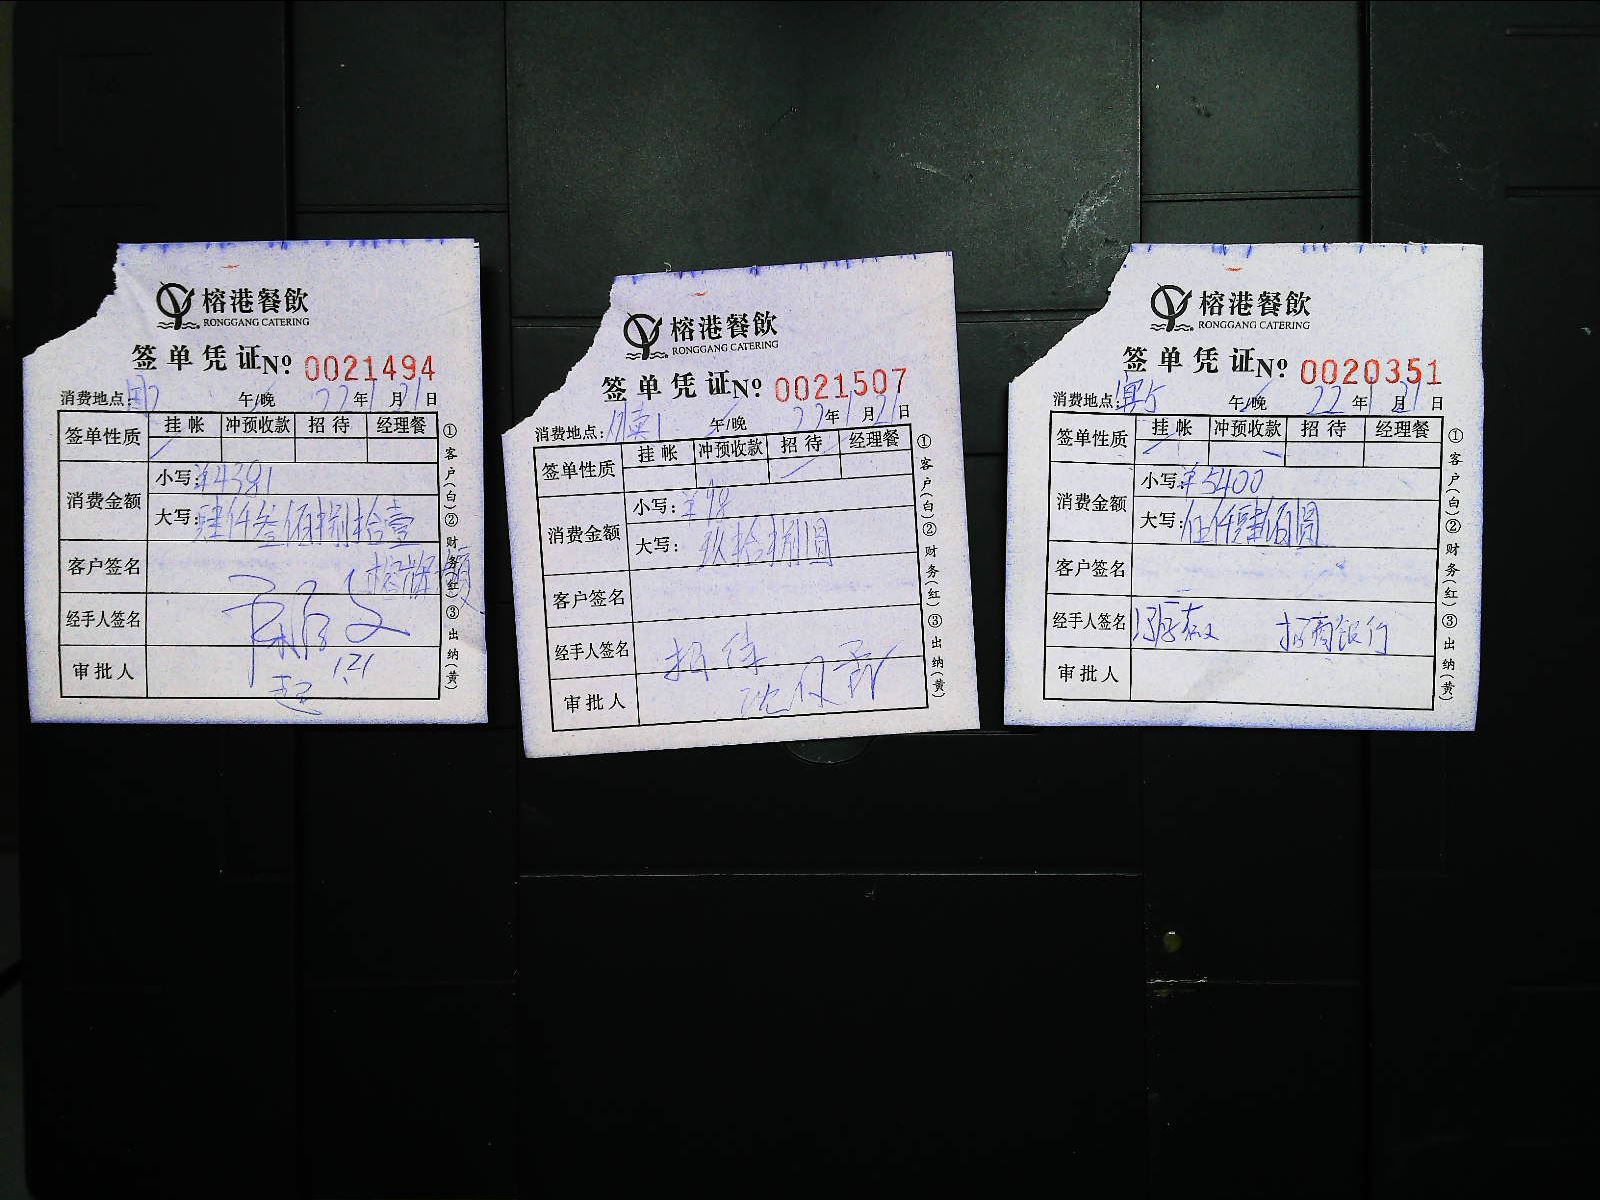 榕港餐飲
RONGGANG CATERING
签单凭证 No 0021494
消费地点: 午/晚 22年1月21日
签单性质 挂帐 冲预收款 招待 经理餐
消费金额 小写:¥4381
大写:肆仟叁佰捌拾壹
客户签名
经手人签名
1.21
审批人
①客户(白)②财务(红)③出纳(黄)
榕港餐飲
RONGGANG CATERING
签单凭证 No 0021507
消费地点: 午/晚 22年1月21日
签单性质 挂帐 冲预收款 招待 经理餐
消费金额 小写:¥98
大写:玖拾捌圆
客户签名
经手人签名 招待
审批人
①客户(白)②财务(红)③出纳(黄)
榕港餐飲
RONGGANG CATERING
签单凭证 No 0020351
消费地点: 午/晚 22年1月21日
签单性质 挂帐 冲预收款 招待 经理餐
消费金额 小写:¥5400
大写:伍仟肆佰圆
客户签名
经手人签名 招商银行
审批人
①客户(白)②财务(红)③出纳(黄)